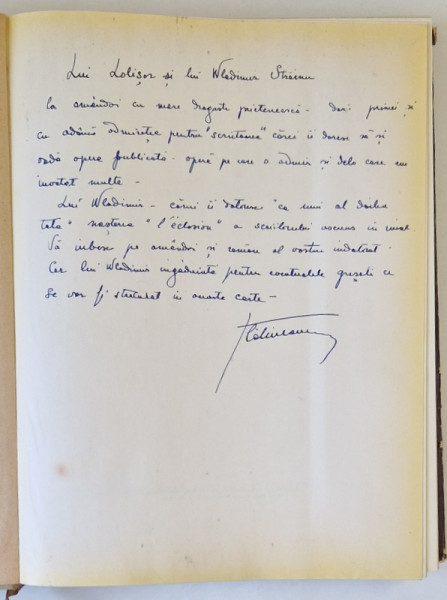 Lui Lolișor și lui Wladimir Streinu
la amândoi cu mare dragoste prietenească - dar primei și
cu adâncă admirație pentru "scriitoarea" căreia îi doresc să-și
vadă opera publicată - operă pe care o admir și dela care am
învățat multe -
Lui Wladimir - căruia îi datoresc "ca unui al doilea
tată" nașterea "l'éclosion" a scriitorului ascuns în mine.
Vă iubesc pe amândoi și rămân al vostru îndatorat -
Cer lui Wladimir îngăduință pentru eventualele greșeli ce
se vor fi strecurat în aceste carte -